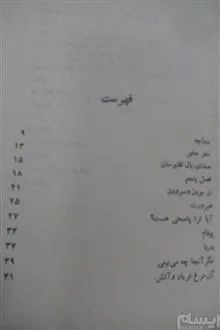 فهرست
دیباچه ۹
سفر بخیر ۱۳
صدای بال ققنوسان ۱۵
فصل پنجم ۱۸
از بودن و سرودن ۲۱
ضرورت ۲۵
آیا ترا پاسخی هست؟ ۲۷
پیغام ۳۳
دریا ۳۷
نگر آنجا چه می‌بینی ۳۹
آن مرغ فریاد و آتش ۴۱
ایسام